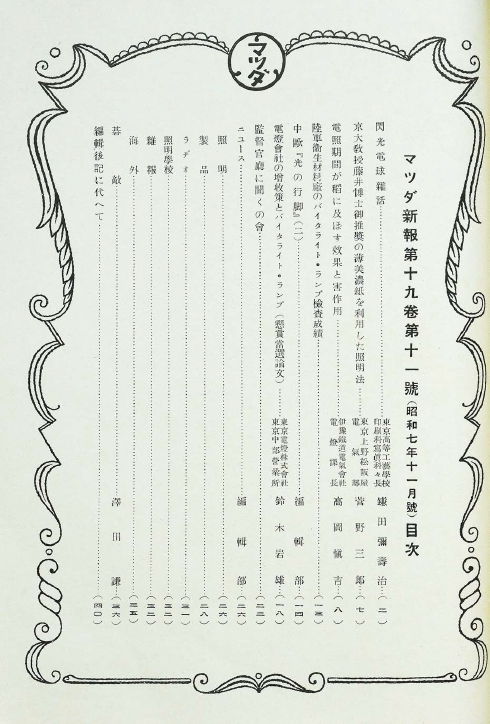 マツダ
マツダ新報第十九卷第十一號(昭和七年十一月號)目次
閃光電球雜話………東京高等工藝學校印刷科寫眞科々長 鎌田彌壽治…(二)
京大敎授藤井博士御推奬の薄美濃紙を利用した照明法………東京上野松阪屋電氣部 菅野三郞…(七)
電照期間が稻に及ぼす效果と害作用………伊豫鐵道電氣會社電燈課長 高岡愼吉…(八)
陸軍衞生材料廠のバイタライト・ランプ檢查成績………(一三)
中歐『光の行脚』(二)………編輯部…(一四)
電燈會社の增收策とバイタライト・ランプ(懸賞當選論文)………東京電燈株式會社東京中部營業所 鈴木岩雄…(一八)
監督官廳に聞くの會………(二二)
ニュース………編輯部…(二六)
照明………(二六)
製品………(二八)
ラヂオ………(三一)
照明學校………(三二)
雜報………(三二)
海外………(三五)
碁敵………澤田謙…(三六)
編輯後記に代へて………(四〇)